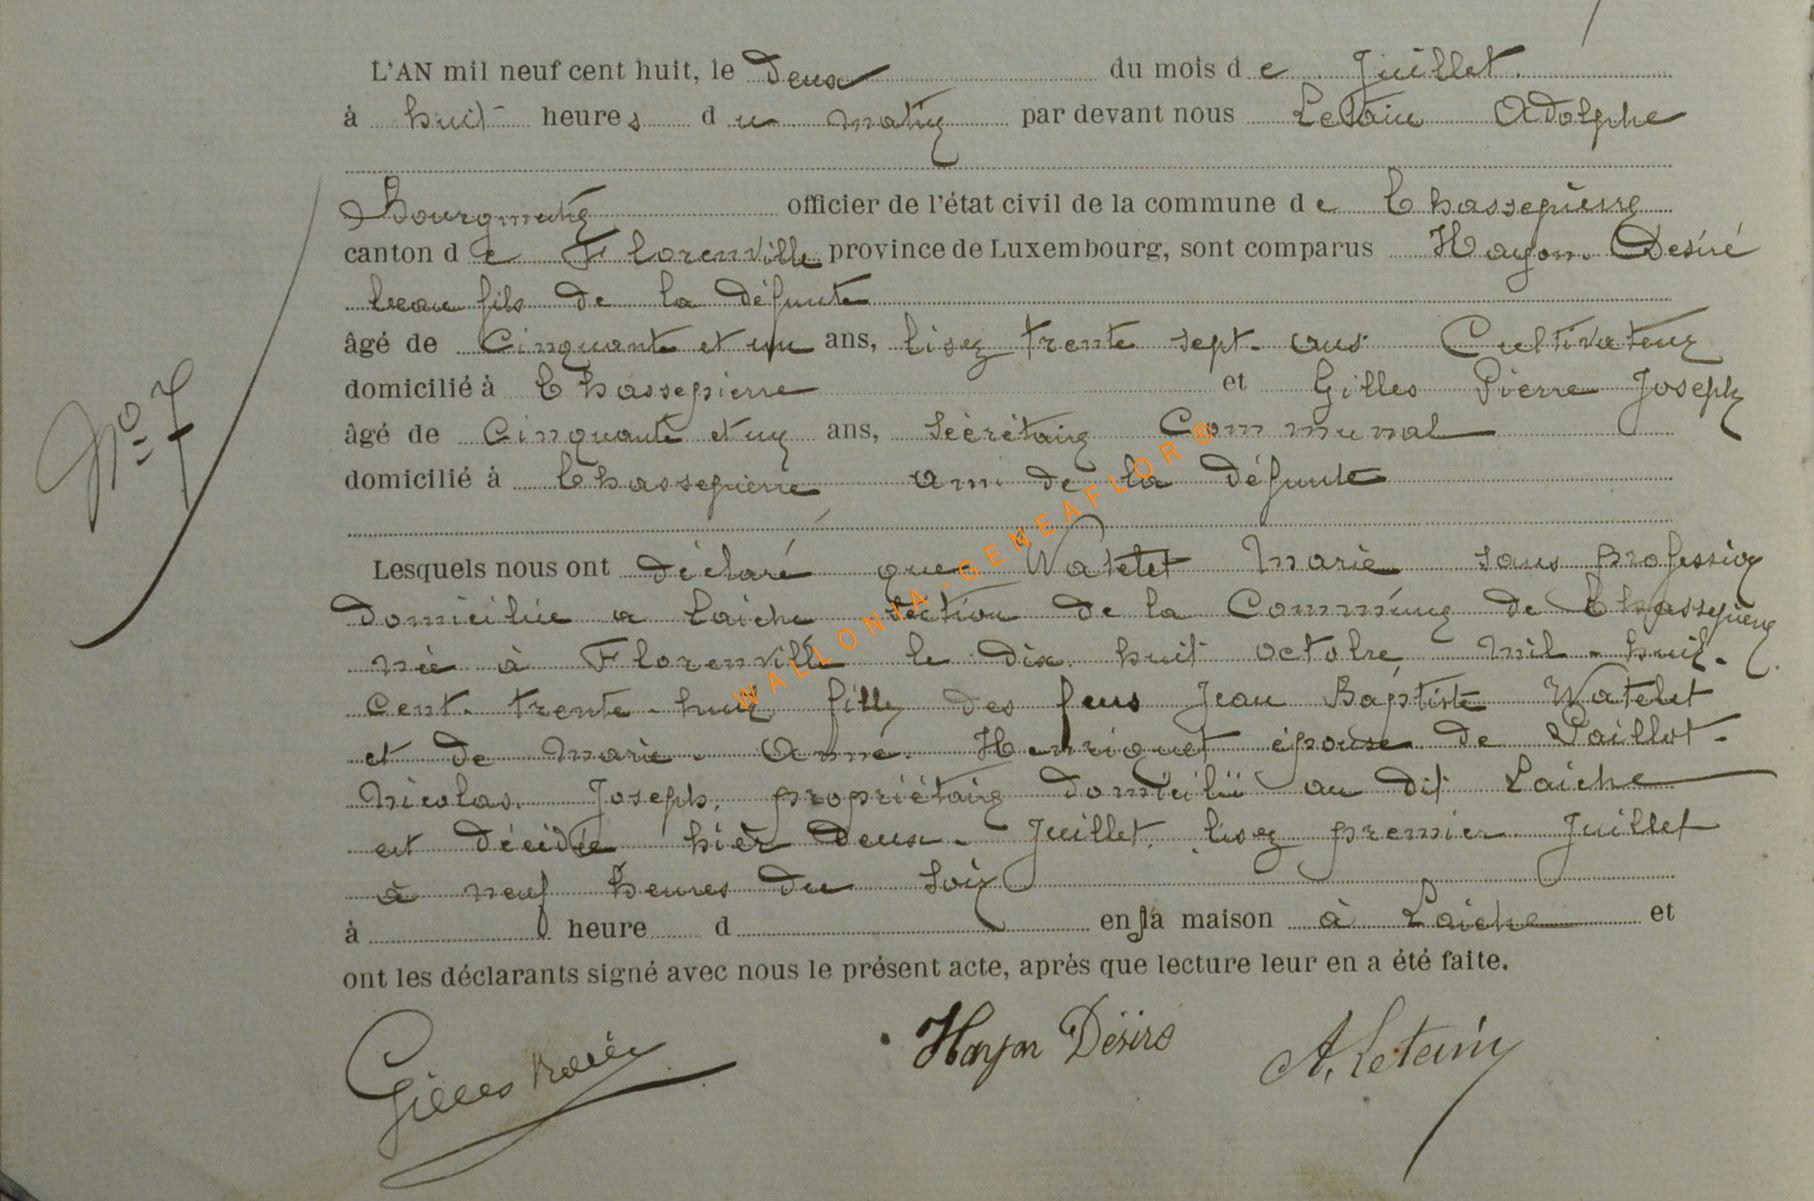 L'AN mil neuf cent huit, le deux du mois de Juillet
à huit heures du matin par devant nous Letain Adolphe
Bourgmestre officier de l'état civil de la commune de Chassepierre
canton de Florenville province de Luxembourg, sont comparus Hayon Désiré
beau fils de la défunte
âgé de Cinquante et un ans, lisez trente sept ans Cultivateur
domicilié à Chassepierre et Gilles Pierre Joseph
âgé de Cinquante et un ans, Sécrétaire Communal
domicilié à Chassepierre ami de la défunte
Nº 7
Lesquels nous ont déclaré que Watelet Marie sans profession
domiciliée a Laiche section de la Commune de Chassepierre
née à Florenville le dix huit octobre mil huit
cent trente huit fille des feus Jean Baptiste Watelet
et de Marie Anne Henriquet épouse de Paillot
Nicolas Joseph, propriétaire domicilié au dit Laiche
est décédée hier deux Juillet, lisez premier Juillet
à neuf heures du soir
à heure d en la maison à Laiche et
ont les déclarants signé avec nous le présent acte, après que lecture leur en a été faite.
Gilles Hayon Désiré A. Letain
WALLONIA-GENEAFLOR ®